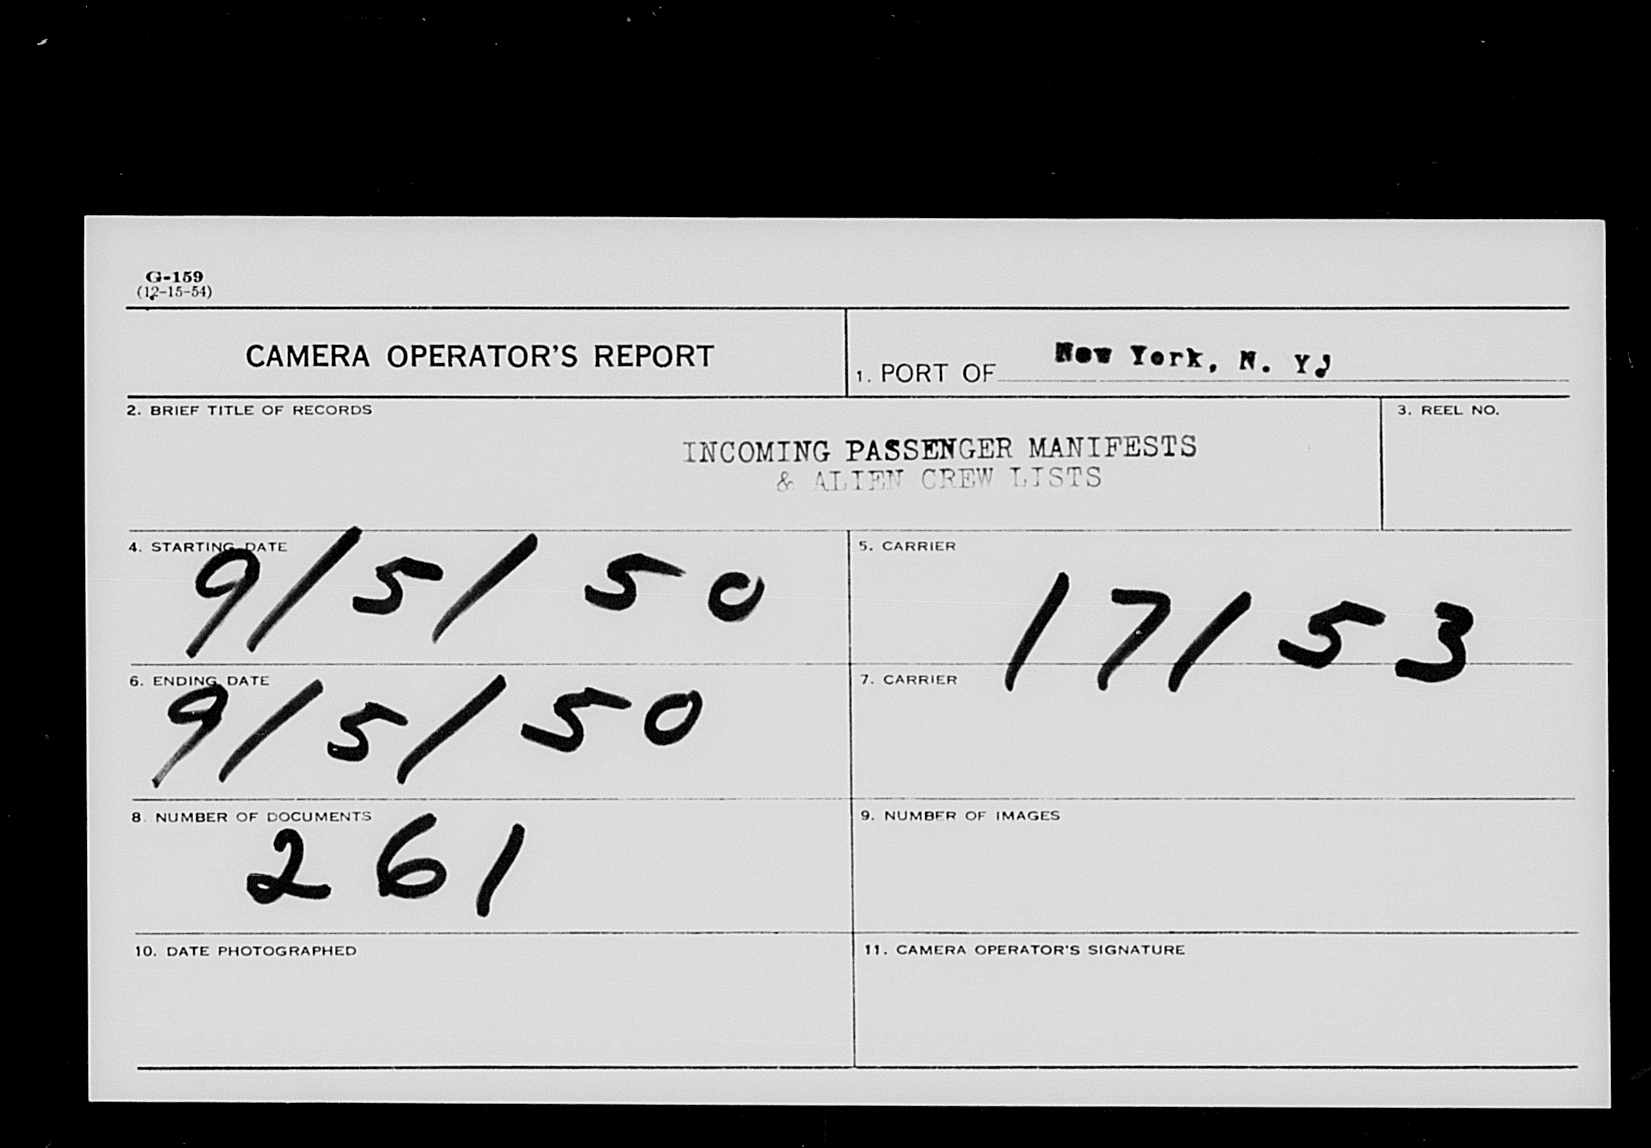 G-159
(12-15-54)
CAMERA OPERATOR'S REPORT
1. PORT OF New York, N. Y.
2. BRIEF TITLE OF RECORDS
3. REEL NO.
INCOMING PASSENGER MANIFESTS
& ALIEN CREW LISTS
4. STARTING DATE
9/5/50
5. CARRIER
17153
6. ENDING DATE
9/5/50
7. CARRIER
8. NUMBER OF DOCUMENTS
261
9. NUMBER OF IMAGES
10. DATE PHOTOGRAPHED
11. CAMERA OPERATOR'S SIGNATURE